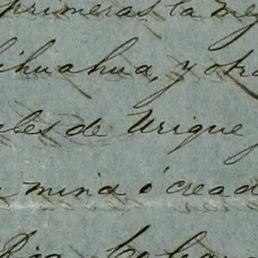 primeras la mej
ihuahua, y otra
ales de Urique
mina ó cread